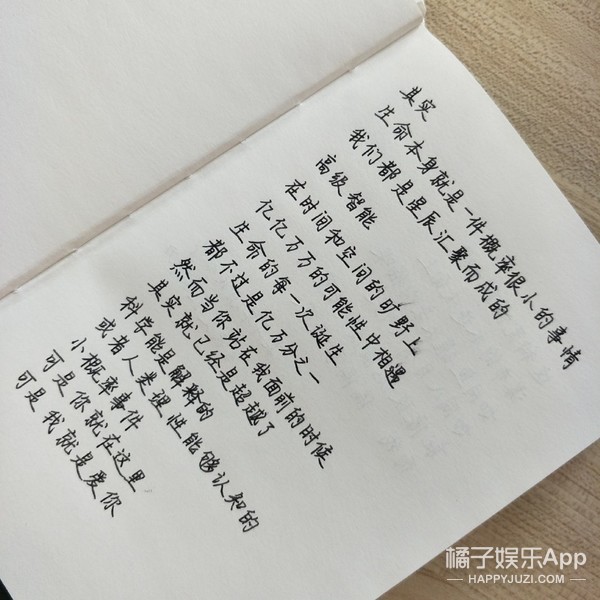 其实
生命本身就是一件概率很小的事情
我们都是星辰汇聚而成的
高级智能
在时间和空间的旷野上
亿亿万万的可能性中相遇
生命的每一次诞生
都不过是亿万分之一
然而当你站在我面前的时候
其实就已经是超越了
科学能是解释的
或者人类理性能够认知的
小概率事件
可是你就在这里，
可是我就是爱你
橘子娱乐App
HAPPYJUZI.COM